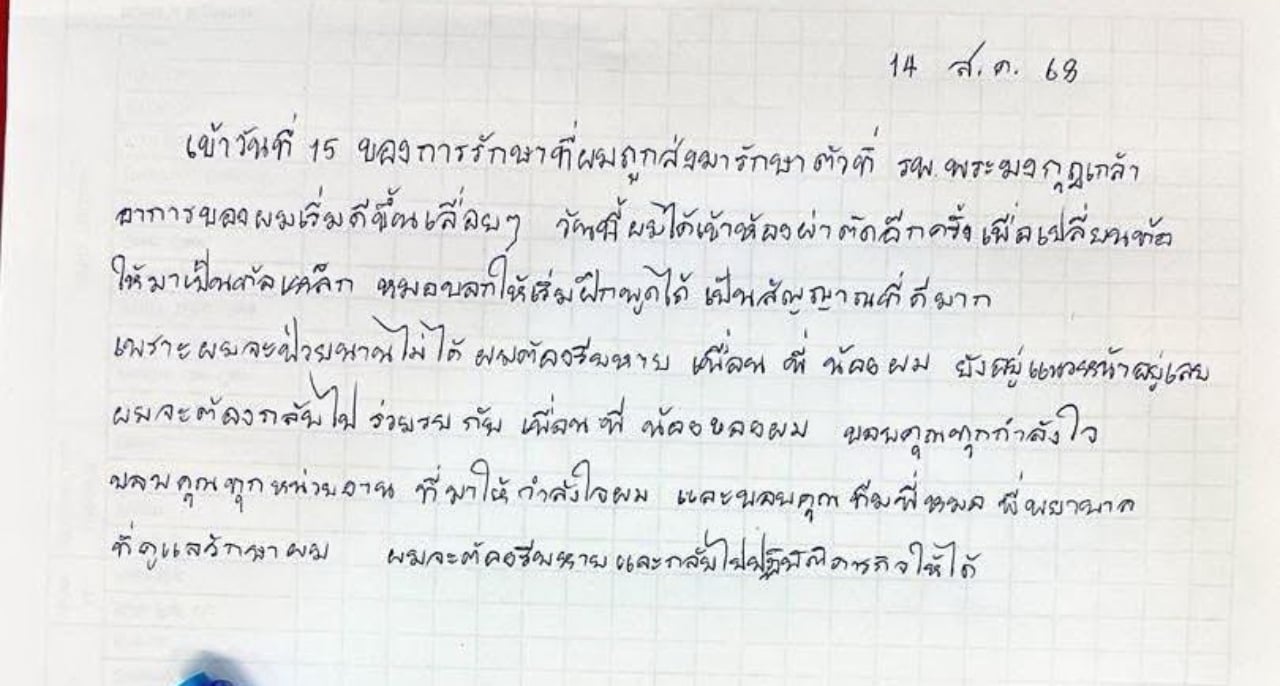 14 ส.ค. 68
เข้าวันที่ 15 ของการรักษาที่ผมถูกส่งมารักษาตัวที่ รพ.พระมงกุฎเกล้า
อาการของผมเริ่มดีขึ้นเลื่อยๆ วันนี้ผมได้เข้าห้องผ่าตัดอีกครั้งเพื่อเปลี่ยนท่อ
ให้มาเป็นท่อเหล็ก หมอบอกให้เริ่มฝึกพูดได้ เป็นสัญญาณที่ดีมาก
เพราะผมจะป่วยนานไม่ได้ ผมต้องรีบหาย เพื่อน พี่ น้อง ผม ยังอยู่แนวหน้าอยู่เลย
ผมจะต้องกลับไป ร่วมรบ กับ เพื่อน พี่ น้องของผม ขอบคุณทุกกำลังใจ
ขอบคุณทุกหน่วยงาน ที่มาให้กำลังใจผม และขอบคุณ ทีมพี่หมอ พี่พยาบาล
ที่ดูแลรักษาผม ผมจะต้องรีบหายและกลับไปปฏิบัติภารกิจให้ได้